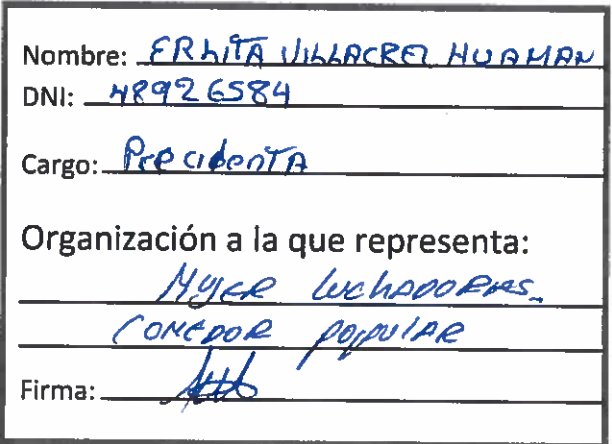 Nombre: ERLITA VILLACREZ HUAMAN
DNI: 48926584
Cargo: PrecidenTA
Organización a la que representa:
MUJER luchADORAS
COMEDOR POPULAR
Firma: